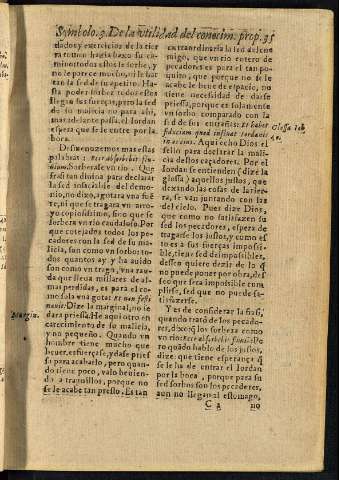 Symbolo. 3. De la vtilidad del conocim. prop. 35
dados y exercicios de la tier
ra como hazia baxo su ca-
mino: todos ellos se sorbe, y
no le parece mucho, ni le har
tan la sed de su apetito. Has
ta poder sorber todos ellos
llegan sus fuerças, pero la sed
de su malicia no para ahi,
mas adelante passa: el Iordan
espera que se le entre por la
boca.
Desmenuzemos mas estas
palabras: Ecce absorbebit flu-
uium. Sorberase vn rio. Que
frasi tan diuina para declarar
la sed insaciable del demo-
nio, no dixo, agotara vna fuẽ
te, ni que se tragara vn arro-
yo copiosissimo, sino que se
sorbera vn rio caudaloso. Por
que cotejados todos los pe-
cadores con la sed de su ma-
licia, son como vn sorbo: to-
dos quantos ay y ha auido
son como vn trago, vna rau-
da que lleua millares de al-
mas perdidas, es para el co-
mo sola vna gota: Et non festi
nauit. Dize la marginal, no le
dara priessa. He aqui otro en
carecimiento de su malicia,
y no pequeño. Quando vn
hombre tiene mucho que
beuer, esfuerçase, y dase priessa
para acabarlo, pero quan-
do tiene poco, valo beuien-
do a traguillos, porque no
se le acabe tan presto. Es tan
Margin.
extraordinaria la sed del ene-
migo, que vn rio entero de
pecadores es para el tan po-
quito, que porque no se le
acabe le beue de espacio, no
tiene necessidad de darse
priessa, porque es solamente
vn sorbo, comparado con la
sed de sus entrañas: Et habet
fiduciam quod influat Iordanis
in os eius. Aqui echo Dios el
sello para declarar la mali-
cia destos caçadores. Por el
Iordan se entienden (dize la
glossa) aquellos justos, que
dexando las cosas de la tier-
ra, se van juntando con las
del cielo. Pues dize Dios, que
como no satisfazen su
sed los pecadores, espera de
tragarse los justos, y como es
to a sus fuerças impossi-
ble, tiene sed de impossibles,
dessea quiere dezir de lo q̃
no puede poner por obra, des-
seo que sera impossible com-
plirse, sed que no puede sa-
tisfazerse.
Y es de considerar la frasi,
quando tratò de los pecado-
res, dixo q̃ los sorbera como
vn rio: Ecce absorbebit fluuiũ. Pe
ro quãdo hablo de los justos,
dize que tiene esperança q̃
se le ha de entrar el Iordan
por la boca, porque para su
sed sorbos son los pecadores,
aun no llegan al estomago,
Glossa Iob
40.
no